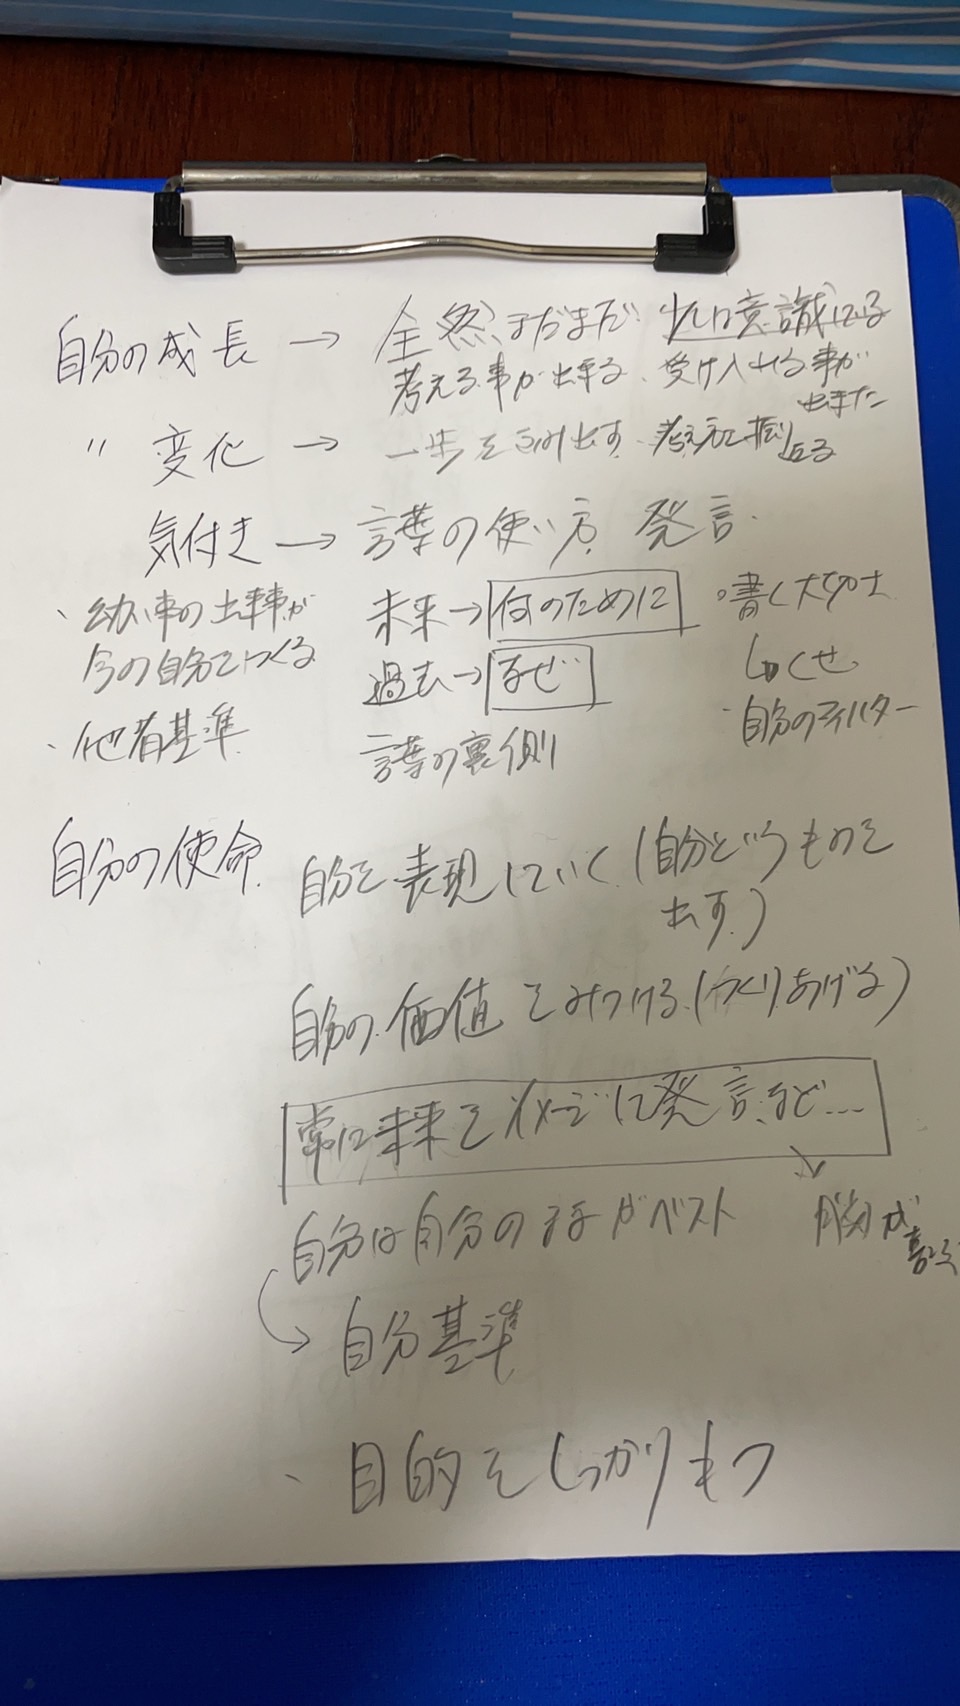 自分の成長 → 全然まだまだ 少しは意識にはる
考える事が出来る、受け入れる事が
出来た
〃 変化 → 一歩をふみ出す、考え方を振り返る
気付き → 言葉の使い方、発言
・幼い事の出来事が
今の自分をつくる
・他者基準
未来→何のために
過去→なぜ
言葉の裏側
。書く大切さ
しくせ
・自分のライバター
自分の使命
自分を表現していく(自分というものを
出す)
自分の価値をみつける(つくりあげる)
常に未来をイメージに発言など…
→ 脳が喜ぶ
自分は自分のままがベスト
→ 自分基準
、目的をしっかりもつ